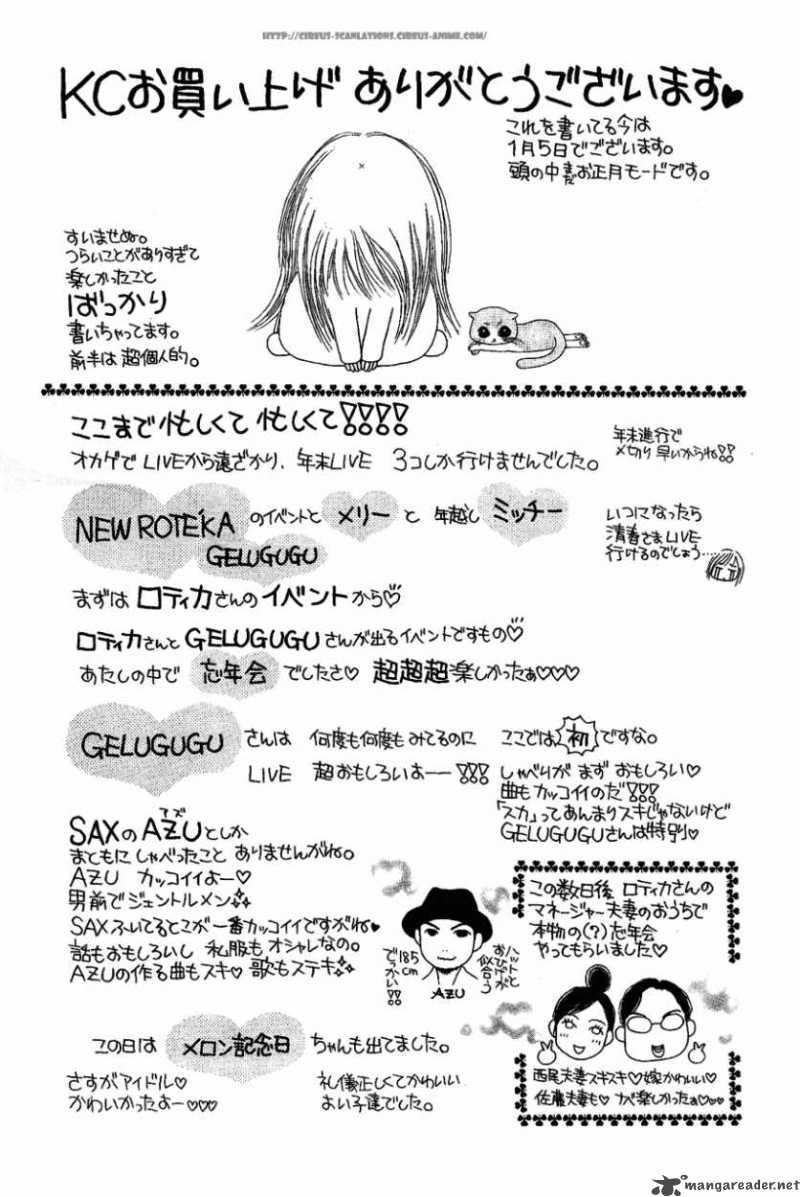 HTTP://CIRCUS-SCANLATIONS.CIRCUS-ANIME.COM/
KCお買い上げ ありがとうございます♥
これを書いてる今は
1月5日でございます。
頭の中まだお正月モードです。
すいませぬ。
つらいことがありすぎて
楽しかったこと
ばっかり
書いちゃってます。
前半は 超個人的。
ここまで忙しくて忙しくて!!!!
オカゲで LIVEから遠ざかり、年末LIVE 3コしか行けませんでした。
年末進行で
〆切り 早いからね!!
NEW ROTE'KA のイベントと メリー と 年越し ミッチー
GELUGUGU
いつになったら
清春さまLIVE
行けるのでしょう……
まずは ロティカさんの イベントから♡
ロティカさんと GELUGUGUさんが出るイベントですもの♡
あたしの中で 忘年会 でしたさ♡ 超超超楽しかったぁ♡♡♡
GELUGUGU さんは 何度も何度も みてるのに
LIVE 超おもしろいよーー!!!
ここでは 初 ですな。
しゃべりが まず おもしろい♡
曲も カッコイイのだ!!!
「スカ」って あんまりスキじゃないけど
GELUGUGUさんは特別♡
アズ
SAXの AZUとしか
まともに しゃべったこと ありませんがね。
AZU カッコイイよー♡
男前で ジェントルメン
SAXふいてるとこが 一番カッコイイですがね♥
話もおもしろいし 私服も オシャレなの。
AZUの作る曲もスキ♡ 歌もステキ
ハットと
おひげが
似合う
185cm
でっかい!!
AZU
この数日後 ロティカさんの
マネージャー夫妻のおうちで
本物の(?)忘年会
やってもらいました♡
西尾夫妻スキスキ♡嫁かわいい♡
佐藤夫妻も♡ ナベ楽しかったぁ♡♡♡
この日は メロン記念日 ちゃんも出てました。
さすがアイドル♡
かわいかったよー♡♡♡
礼儀正しくてかわいい
よい子達でした。
mangareader.net